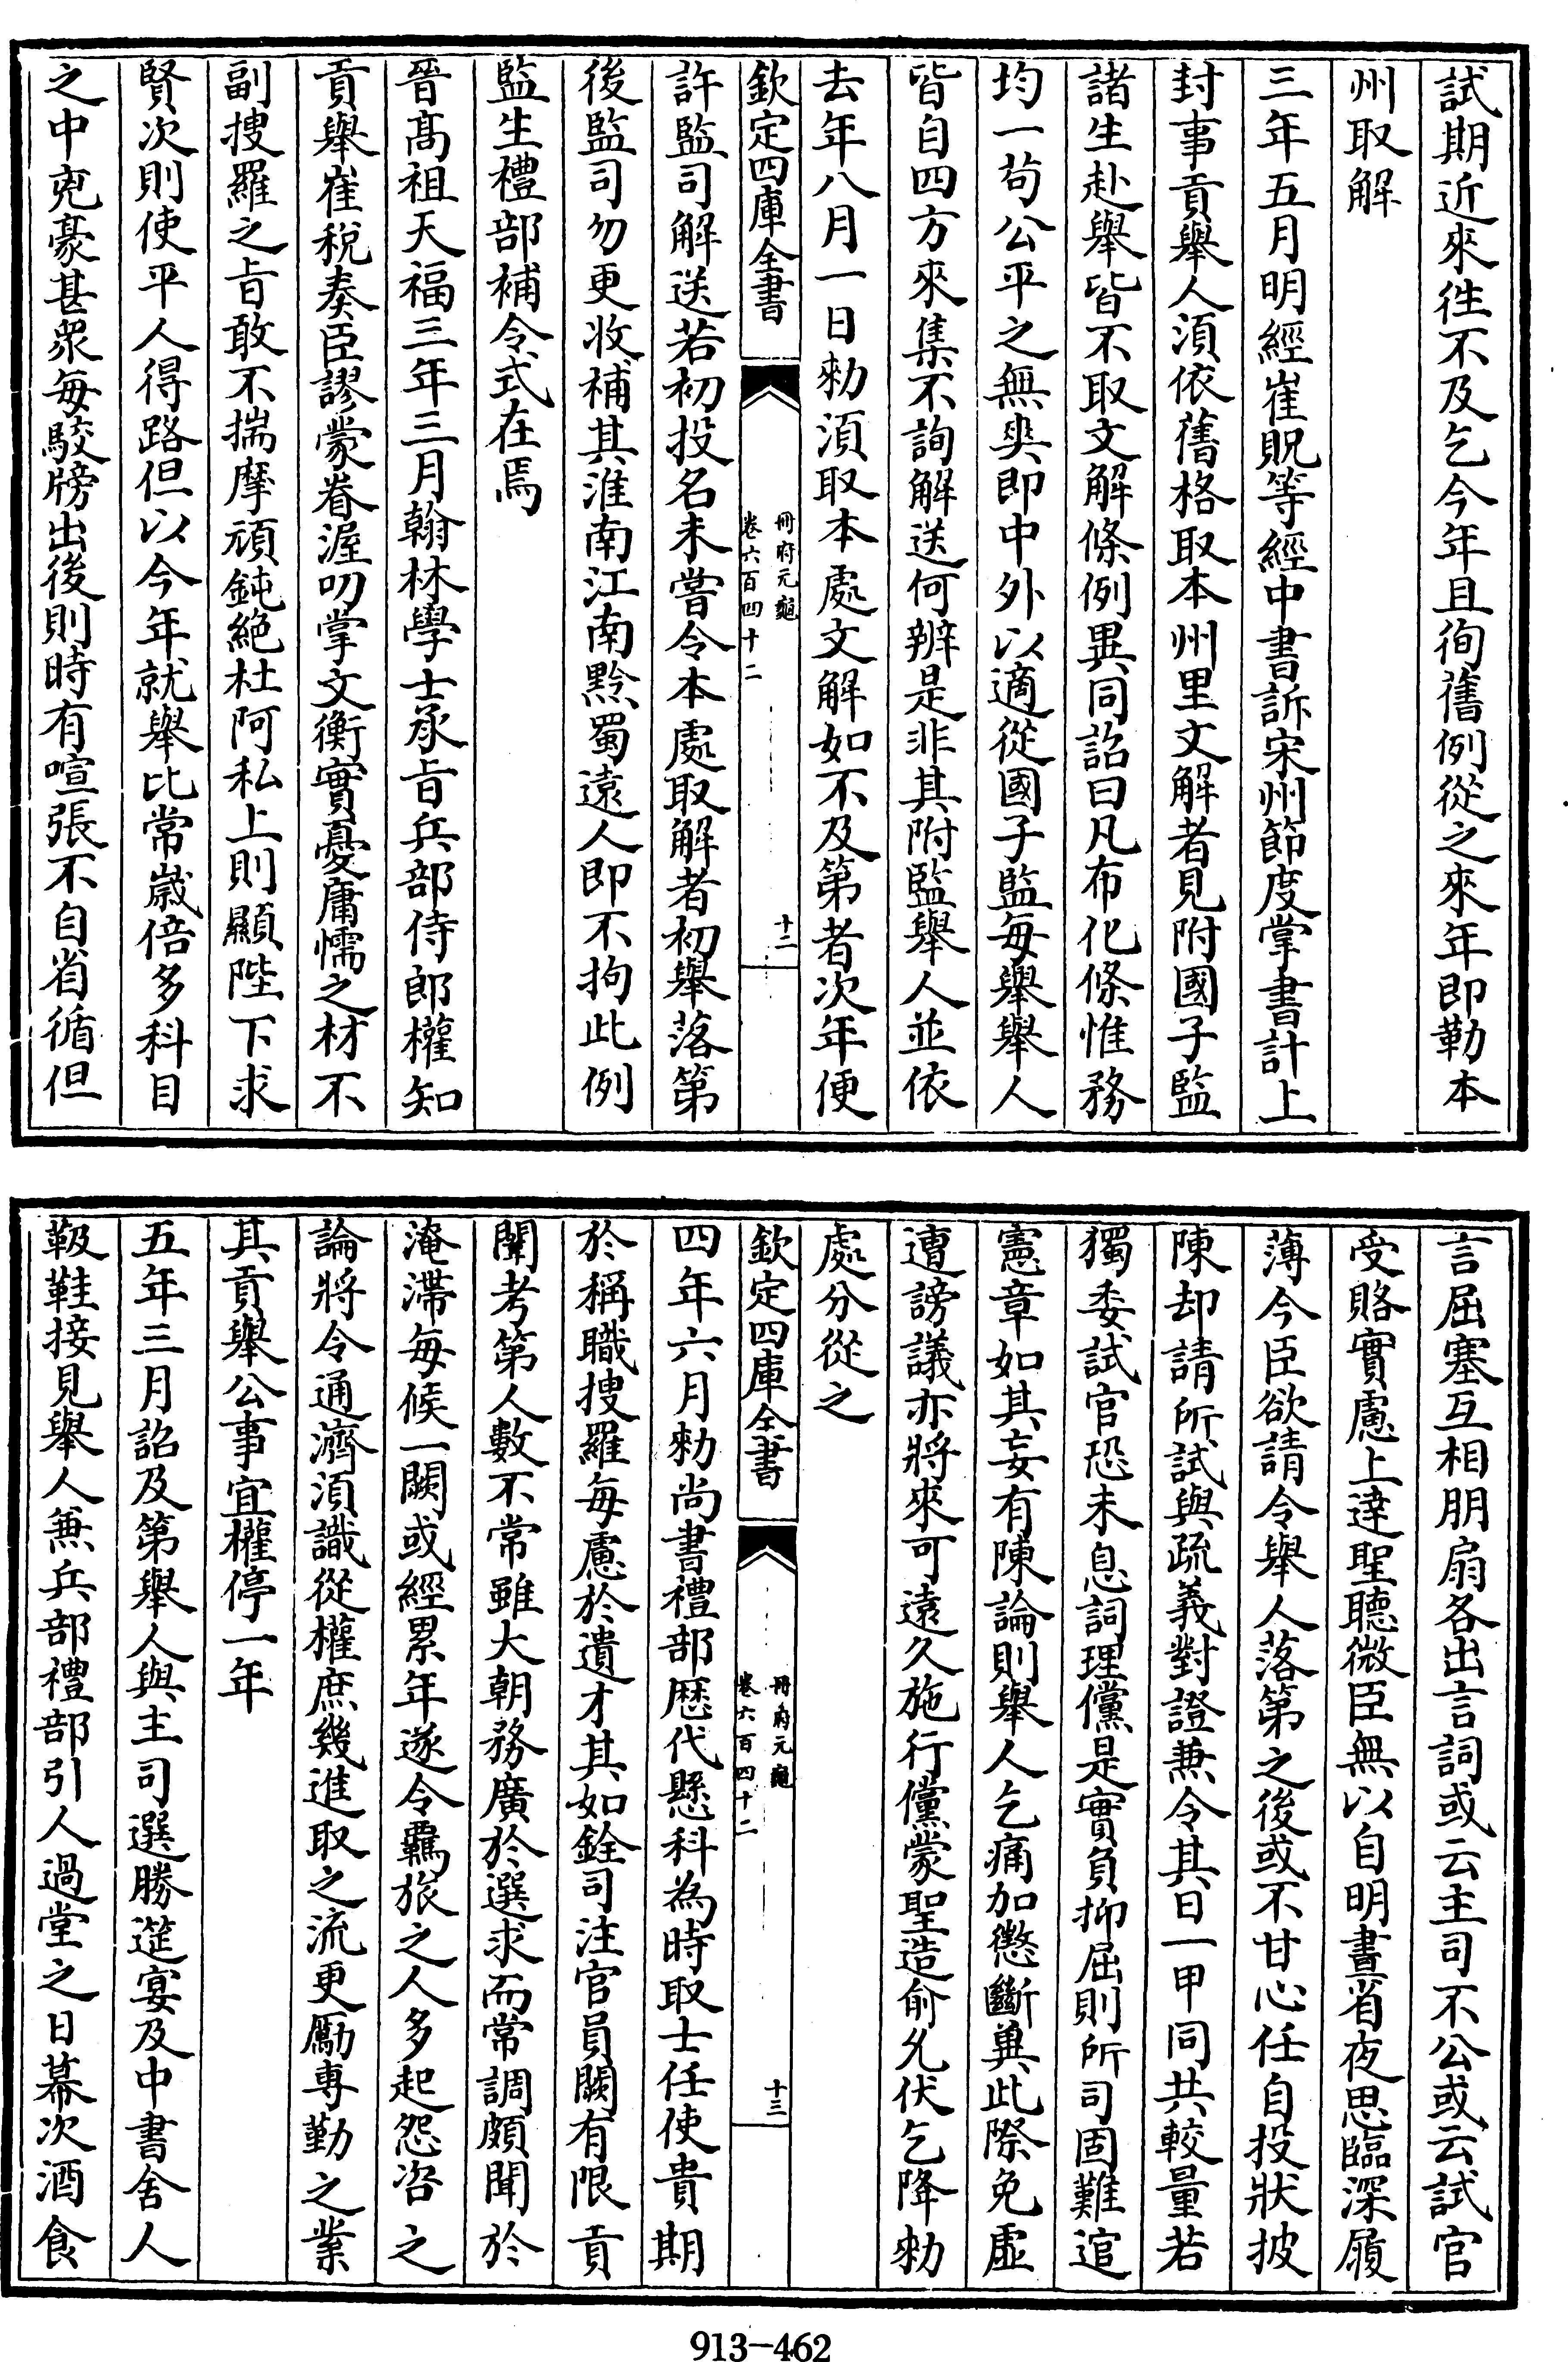 試期近來徃不及乞今年且徇舊例從之來年即勒本
州取解
三年五月明經崔貺等經中書訴宋州節度掌書計上
封事貢舉人湏依舊格取本州里文解者見附國子監
諸生赴舉皆不取文解條例異同詔曰凡布化條惟務
均一苟公平之無爽即中外以適從國子監每舉舉人
皆自四方來集不詢解送何辨是非其附監舉人並依
去年八月一日勅湏取本處文解如不及第者次年便
欽定四庫全書
冊府元龜
卷六百四十二
十二
許監司解送若初投名未嘗令本處取解者初舉落第
後監司勿更收補其淮南江南黔蜀遠人即不拘此例
監生禮部補令式在焉
晉髙祖天福三年三月翰林學士承㫖兵部侍郎權知
貢舉崔稅奏臣謬蒙眷渥叨掌文衡實憂庸懦之材不
副搜羅之㫖敢不揣摩頑鈍絶杜阿私上則顯陛下求
賢次則使平人得路但以今年就舉比常嵗倍多科目
之中兇豪甚衆每駮牓出後則時有喧張不自省循但
言屈塞互相朋扇各出言詞或云主司不公或云試官
受賂實慮上達聖聽微臣無以自明晝省夜思臨深履
薄今臣欲請令舉人落第之後或不甘心任自投狀披
陳却請所試與疏義對證兼令其日一甲同共較量若
獨委試官恐未息詞理儻是實負抑屈則所司固難逭
憲章如其妄有陳論則舉人乞痛加懲斷兾此際免虛
遭謗議亦將來可遠久施行儻蒙聖造俞允伏乞降勅
處分從之
欽定四庫全書
冊府元龜
卷六百四十二
十三
四年六月勅尚書禮部厯代懸科為時取士任使貴期
於稱職搜羅每慮於遺才其如銓司注官員闕有限貢
闈考第人數不常雖大朝務廣於選求而常調頗聞於
淹滯每候一闕或經累年遂令羈旅之人多起怨咨之
論將令通濟湏識從權庶幾進取之流更勵專勤之業
其貢舉公事宜權停一年
五年三月詔及第舉人與主司選勝筵宴及中書舍人
靸鞋接見舉人兼兵部禮部引人過堂之日幕次酒食
913-462